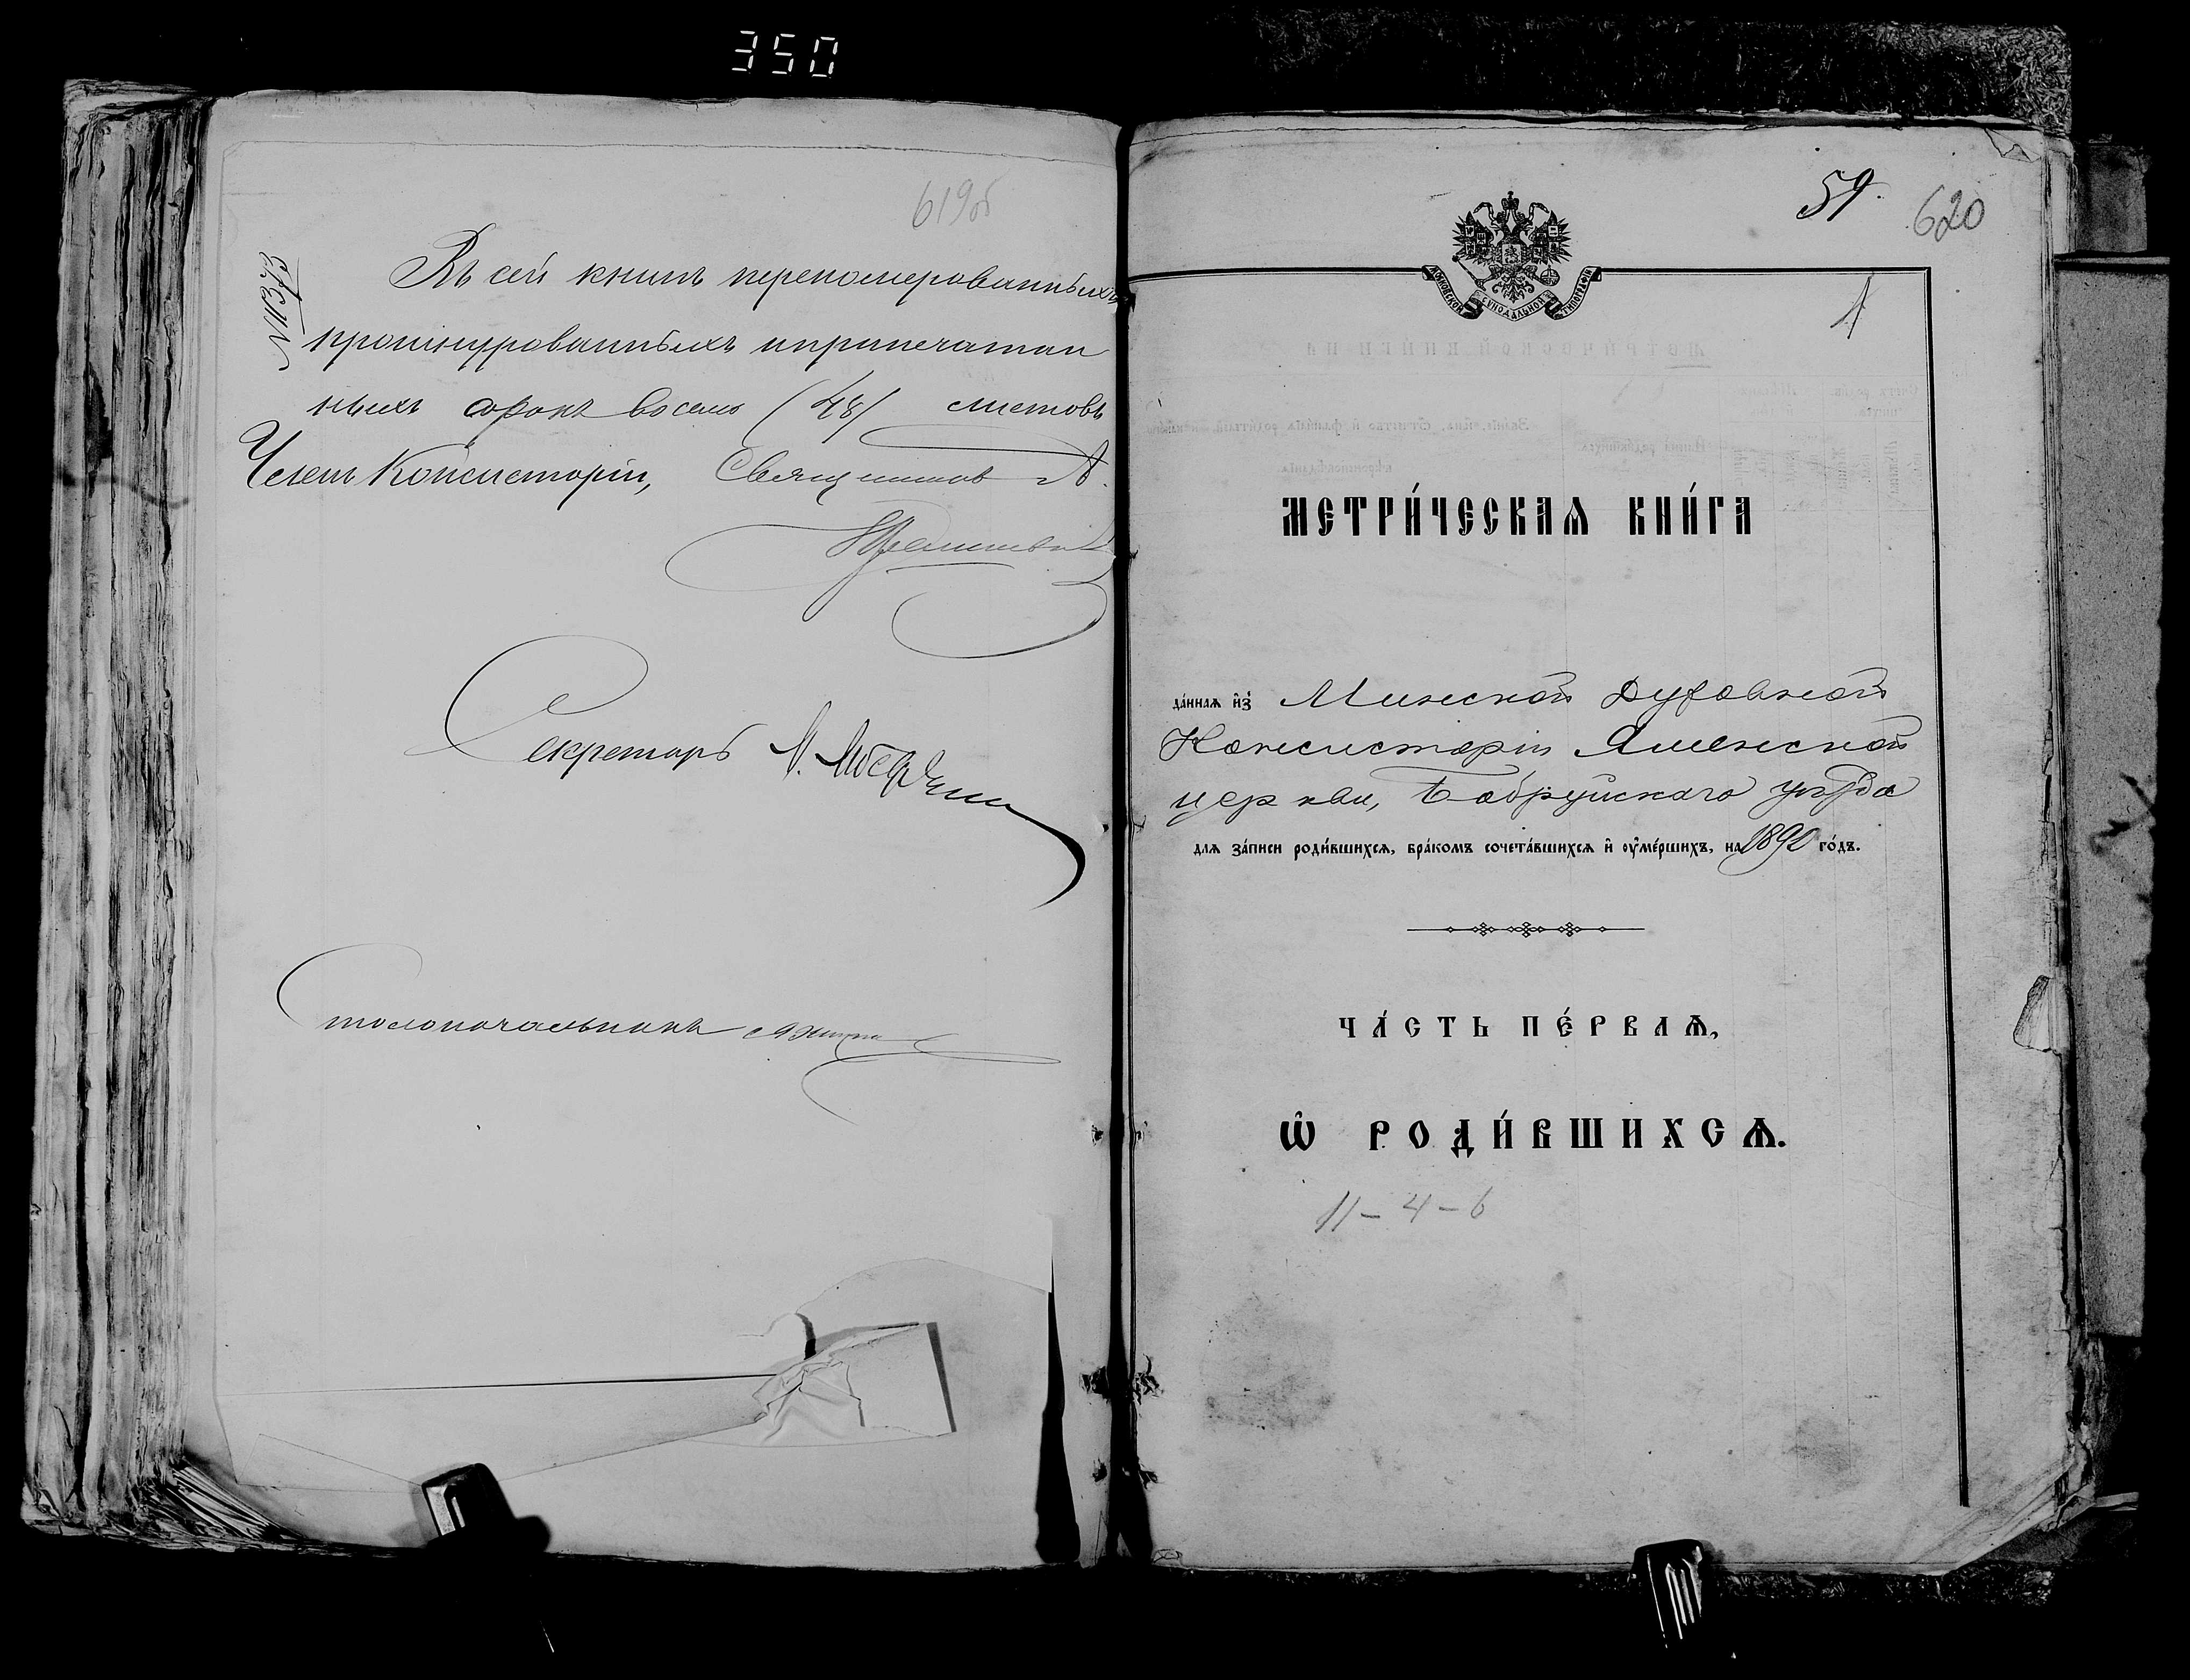 350
619об
№11373
Въ сей книгѣ перенумерованныхъ
прошнурованныхъ и припечатан
ныхъ сорокъ восемь (48) листовъ
Членъ Консисторіи, Священникъ
Секретарь
Столоначальникъ
59.
620
МОСКОВСКОЙ СѴНОДАЛЬНОЙ ТИПОГРАФІИ
1
МЕТРИ́ЧЕСКАѦ КНИ́ГА
да́ннаѧ и҆з̾ Минской Духовной
Консисторіи Яменской
церкви, Бобруйскаго уѣзда
длѧ за́писи роди́вшихсѧ, бра́комъ сочета́вшихсѧ и҆ оу҆ме́ршихъ, на 1890 го́дъ.
ЧА́СТЬ ПЕ́РВАѦ,
Ѡ҆ РОДИ́ВШИХСѦ.
11-4-6